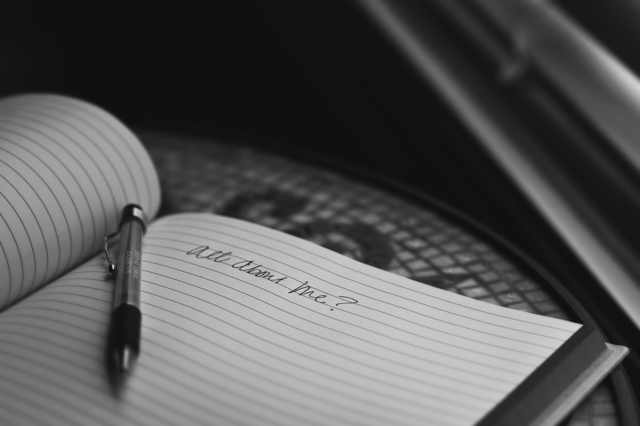 all about me?